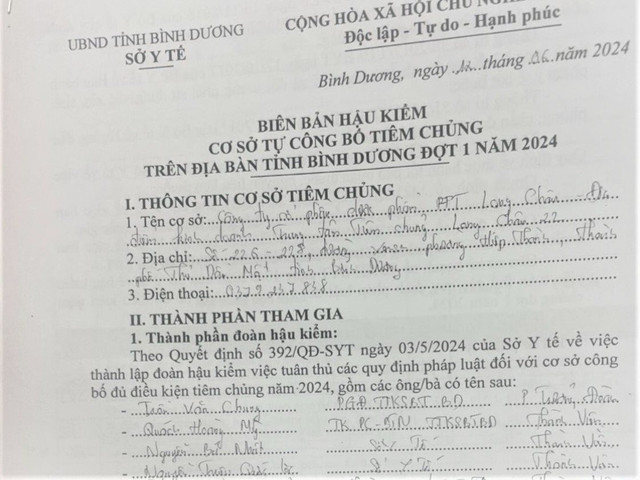 UBND TỈNH BÌNH DƯƠNG
SỞ Y TẾ
CỘNG HÒA XÃ HỘI CHỦ
Độc lập - Tự do - Hạnh phúc
Bình Dương, ngày tháng 06 năm 2024
BIÊN BẢN HẬU KIỂM
CƠ SỞ TỰ CÔNG BỐ TIÊM CHỦNG
TRÊN ĐỊA BÀN TỈNH BÌNH DƯƠNG ĐỢT 1 NĂM 2024
I. THÔNG TIN CƠ SỞ TIÊM CHỦNG
1. Tên cơ sở: Công ty cổ phần dược phẩm FPT Long Châu Địa
điểm kinh doanh Trung tâm Tiêm chủng Long Châu 22
2. Địa chỉ: Số 226 - 228, đường phường Hiệp Thành, Thành
phố Thủ Dầu Một tỉnh Bình Dương
3. Điện thoại:
II. THÀNH PHẦN THAM GIA
1. Thành phần đoàn hậu kiểm:
Theo Quyết định số 392/QĐ-SYT ngày 03/5/2024 của Sở Y tế về việc
thành lập đoàn hậu kiểm việc tuân thủ các quy định pháp luật đối với cơ sở công
bố đủ điều kiện tiêm chủng năm 2024, gồm các ông/bà có tên sau:
- Trần Văn Chung PGĐ TTKSBT BD P Trưởng Đoàn
- Quách Hoàng Mỹ TK PC-BTN TTKSBTBD Thành Viên
- Nguyễn Sở Y Tế Thành Viên
- Nguyễn Sở Y Tế Thành Viên